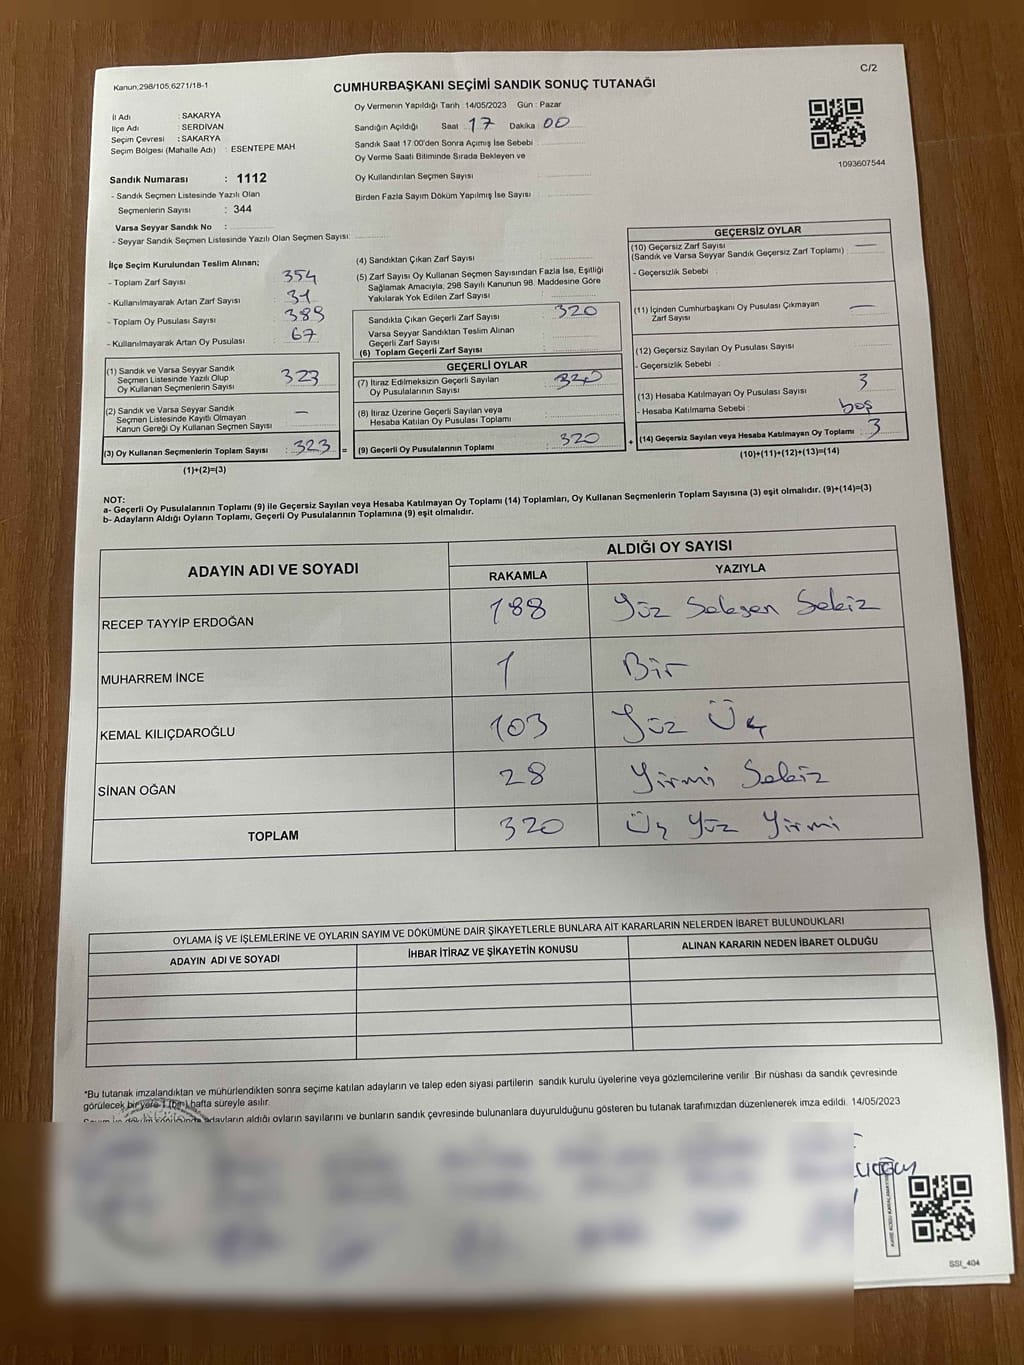 Kanun;298/105;6271/18-1
C/2
CUMHURBAŞKANI SEÇİMİ SANDIK SONUÇ TUTANAĞI
İl Adı : SAKARYA
İlçe Adı : SERDİVAN
Seçim Çevresi : SAKARYA
Seçim Bölgesi (Mahalle Adı) : ESENTEPE MAH
Oy Vermenin Yapıldığı Tarih :14/05/2023 Gün : Pazar
Sandığın Açıldığı Saat 17 Dakika 00
Sandık Saat 17:00'den Sonra Açımış İse Sebebi :
Oy Verme Saati Bitiminde Sırada Bekleyen ve
Oy Kullandırılan Seçmen Sayısı :
Birden Fazla Sayım Döküm Yapılmış İse Sayısı :
1093607544
Sandık Numarası : 1112
- Sandık Seçmen Listesinde Yazılı Olan
Seçmenlerin Sayısı : 344
Varsa Seyyar Sandık No :
- Seyyar Sandık Seçmen Listesinde Yazılı Olan Seçmen Sayısı:
İlçe Seçim Kurulundan Teslim Alınan;
- Toplam Zarf Sayısı : 354
- Kullanılmayarak Artan Zarf Sayısı : 31
- Toplam Oy Pusulası Sayısı : 389
- Kullanılmayarak Artan Oy Pusulası : 67
(1) Sandık ve Varsa Seyyar Sandık
Seçmen Listesinde Yazılı Olup
Oy Kullanan Seçmenlerin Sayısı : 323
(2) Sandık ve Varsa Seyyar Sandık
Seçmen Listesinde Kayıtlı Olmayan
Kanun Gereği Oy Kullanan Seçmen Sayısı : —
(3) Oy Kullanan Seçmenlerin Toplam Sayısı : 323 =
(1)+(2)=(3)
(4) Sandıktan Çıkan Zarf Sayısı :
(5) Zarf Sayısı Oy Kullanan Seçmen Sayısından Fazla İse, Eşitliği
Sağlamak Amacıyla; 298 Sayılı Kanunun 98. Maddesine Göre
Yakılarak Yok Edilen Zarf Sayısı :
Sandıkta Çıkan Geçerli Zarf Sayısı : 320
Varsa Seyyar Sandıktan Teslim Alınan
Geçerli Zarf Sayısı :
(6) Toplam Geçerli Zarf Sayısı :
GEÇERLİ OYLAR
(7) İtiraz Edilmeksizin Geçerli Sayılan
Oy Pusulalarının Sayısı : 320
(8) İtiraz Üzerine Geçerli Sayılan veya
Hesaba Katılan Oy Pusulası Toplamı :
(9) Geçerli Oy Pusulalarının Toplamı : 320 +
GEÇERSİZ OYLAR
(10) Geçersiz Zarf Sayısı
(Sandık ve Varsa Seyyar Sandık Geçersiz Zarf Toplamı) : —
- Geçersizlik Sebebi :
(11) İçinden Cumhurbaşkanı Oy Pusulası Çıkmayan
Zarf Sayısı : —
(12) Geçersiz Sayılan Oy Pusulası Sayısı :
- Geçersizlik Sebebi :
(13) Hesaba Katılmayan Oy Pusulası Sayısı : 3
- Hesaba Katılmama Sebebi : boş
(14) Geçersiz Sayılan veya Hesaba Katılmayan Oy Toplamı : 3
(10)+(11)+(12)+(13)=(14)
NOT:
a- Geçerli Oy Pusulalarının Toplamı (9) ile Geçersiz Sayılan veya Hesaba Katılmayan Oy Toplamı (14) Toplamları, Oy Kullanan Seçmenlerin Toplam Sayısına (3) eşit olmalıdır. (9)+(14)=(3)
b- Adayların Aldığı Oyların Toplamı, Geçerli Oy Pusulalarının Toplamına (9) eşit olmalıdır.
ADAYIN ADI VE SOYADI
ALDIĞI OY SAYISI
RAKAMLA YAZIYLA
RECEP TAYYİP ERDOĞAN 188 Yüz Seksen Sekiz
MUHARREM İNCE 1 Bir
KEMAL KILIÇDAROĞLU 103 Yüz Üç
SİNAN OĞAN 28 Yirmi Sekiz
TOPLAM 320 Üç Yüz Yirmi
OYLAMA İŞ VE İŞLEMLERİNE VE OYLARIN SAYIM VE DÖKÜMÜNE DAİR ŞİKAYETLERLE BUNLARA AİT KARARLARIN NELERDEN İBARET BULUNDUKLARI
ADAYIN ADI VE SOYADI İHBAR İTİRAZ VE ŞİKAYETİN KONUSU ALINAN KARARIN NEDEN İBARET OLDUĞU
*Bu tutanak imzalandıktan ve mühürlendikten sonra seçime katılan adayların ve talep eden siyasi partilerin sandık kurulu üyelerine veya gözlemcilerine verilir .Bir nüshası da sandık çevresinde
görülecek bir yere 1 (bir) hafta süreyle asılır.
adayların aldığı oyların sayılarını ve bunların sandık çevresinde bulunanlara duyurulduğunu gösteren bu tutanak tarafımızdan düzenlenerek imza edildi. 14/05/2023
SSI_404